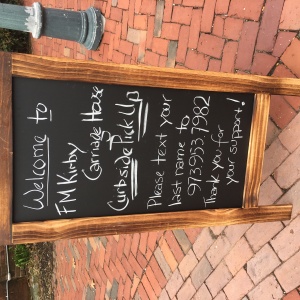 Welcome to
FM Kirby
Carriage House
Curbside Pick Up
Please text your
last name to
973 953 7982
Thank you for
your support!